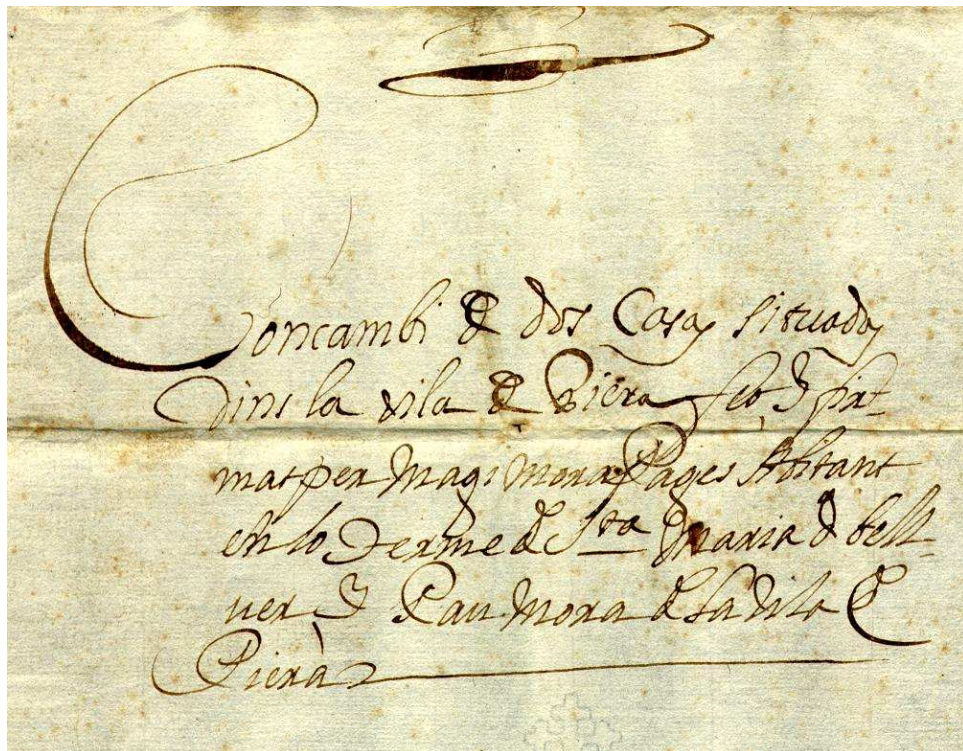 Concambi de dos Casas situadas
dins la vila de Piera feo y fir-
mat per Magi Mora Pages Abitant
en lo Terme de Sta Maria de bell-
uer y Pau Mora de la vila de
Piera